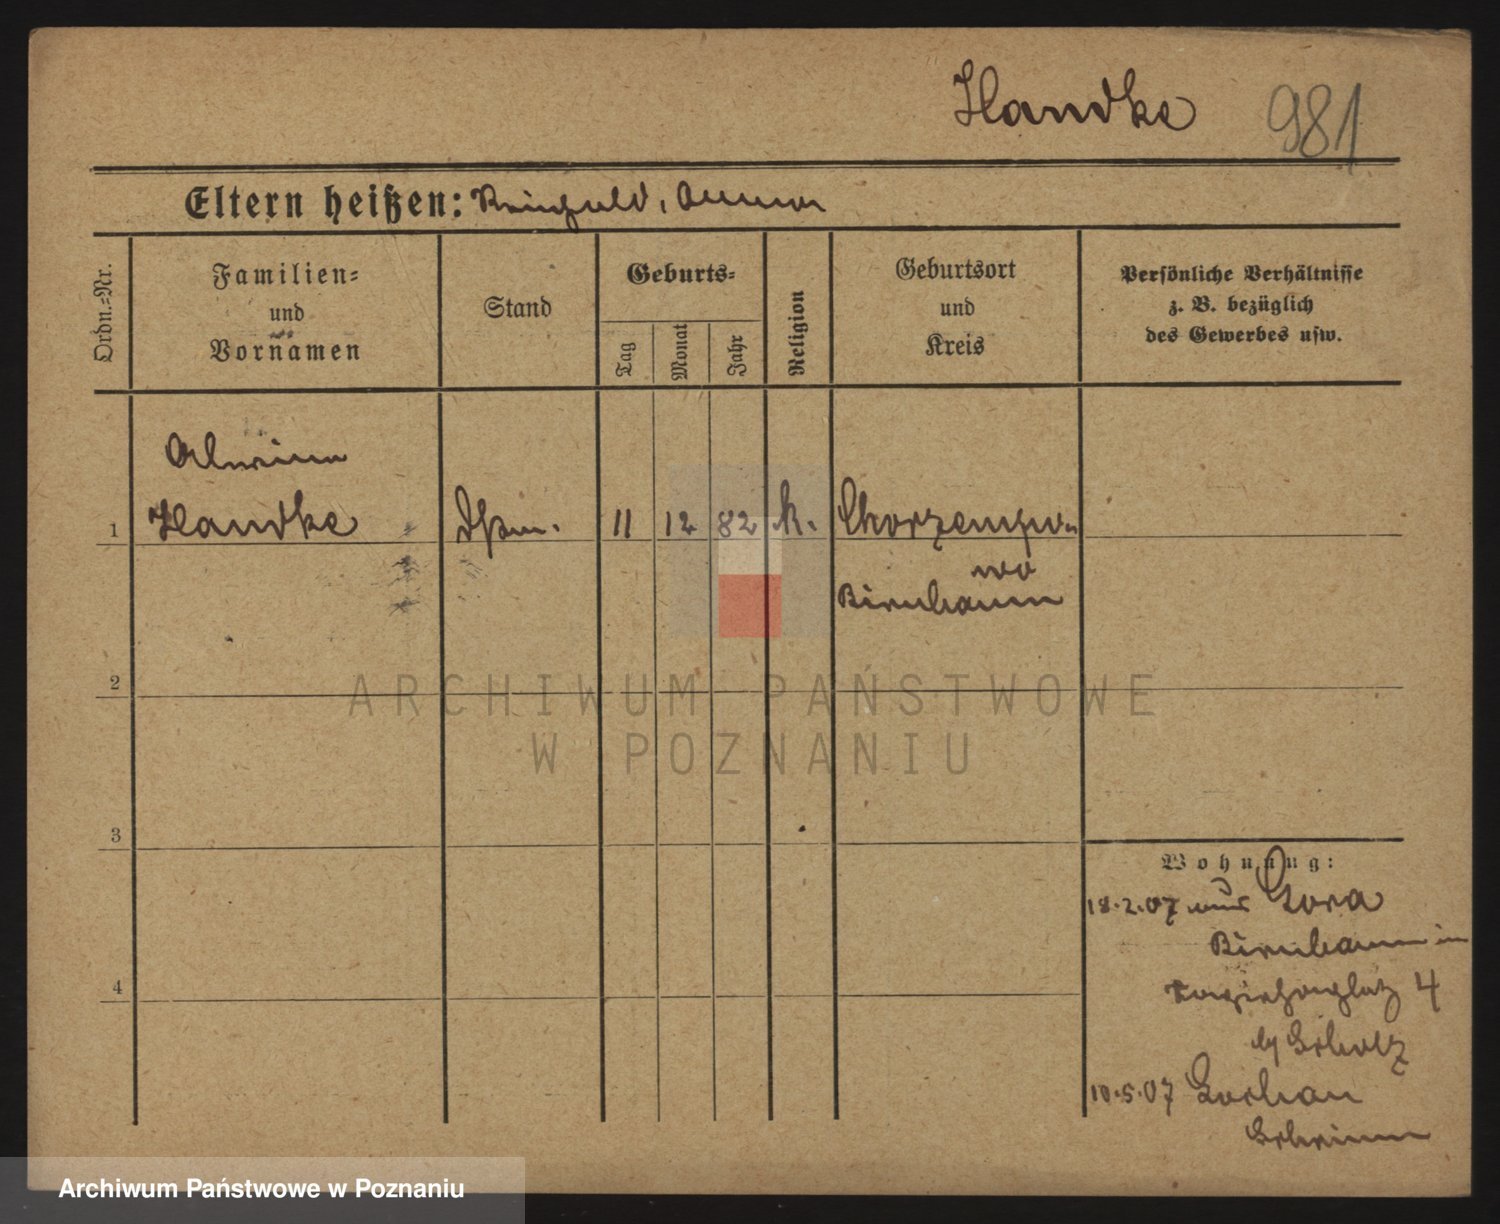 Handke 981
Eltern heißen: Reinhold, Anna
Ordn.=Nr.
Familien=
und
Vornamen
Stand
Geburts=
Tag
Monat
Jahr
Religion
Geburtsort
und
Kreis
Persönliche Verhältnisse
z. B. bezüglich
des Gewerbes usw.
Alwine
1 Handke Dstm. 11 12 82 k. Chorzempo=
wo
Birnbaum
2
3
4
Wohnung:
18.2.07 aus Gora
Birnbaum in
4
by Scholz
10.5.07
Schrimm
ARCHIWUM PAŃSTWOWE
W POZNANIU
Archiwum Państwowe w Poznaniu